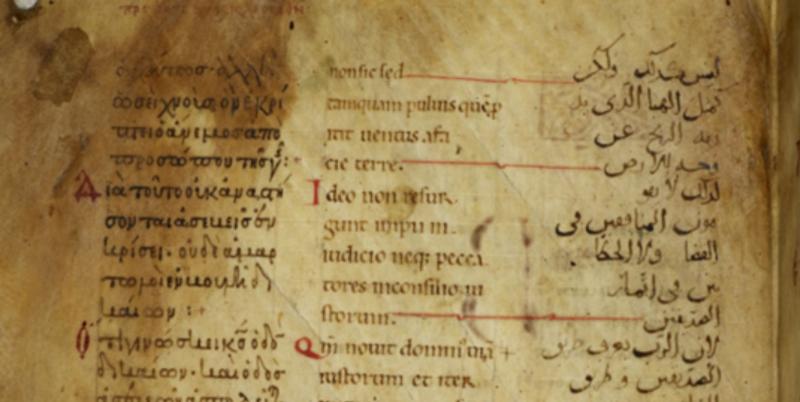 ὡσεὶ χνοῦσ ὃν ἐκρί
πτει ὁ ἄνεμοσ ἀπὸ
προσώπου τῆσ γῆσ:
Διὰ τοῦτο οὐκ ἀναστή
σονται ἀσεβεῖσ ἐν
κρίσει· οὐδὲ ἁμαρ
τωλοὶ ἐν βουλῇ δι
καίων:
Ὅτι γινώσκει κ̅σ ὁδὸν
δικαίων· καὶ ὁδὸσ
non sic sed
tamquam puluis quē p
icit uentus a fa
cie terre.
Ideo non resur
gunt impii in
iudicio neq; pecca
tores in consilio iu
storum.
Qm̅ nouit domin' uiā
iustorum et iter
ليس كذلك ولكن
كمثل الهبا الذي يذ
ريه الريح عن
وجه الارض
لذلك لا يقو
مون المنافقين في
القضا ولا الخطا
يين في
الصديقين
لان الرب يعرف طريق
الصديقين وطريق